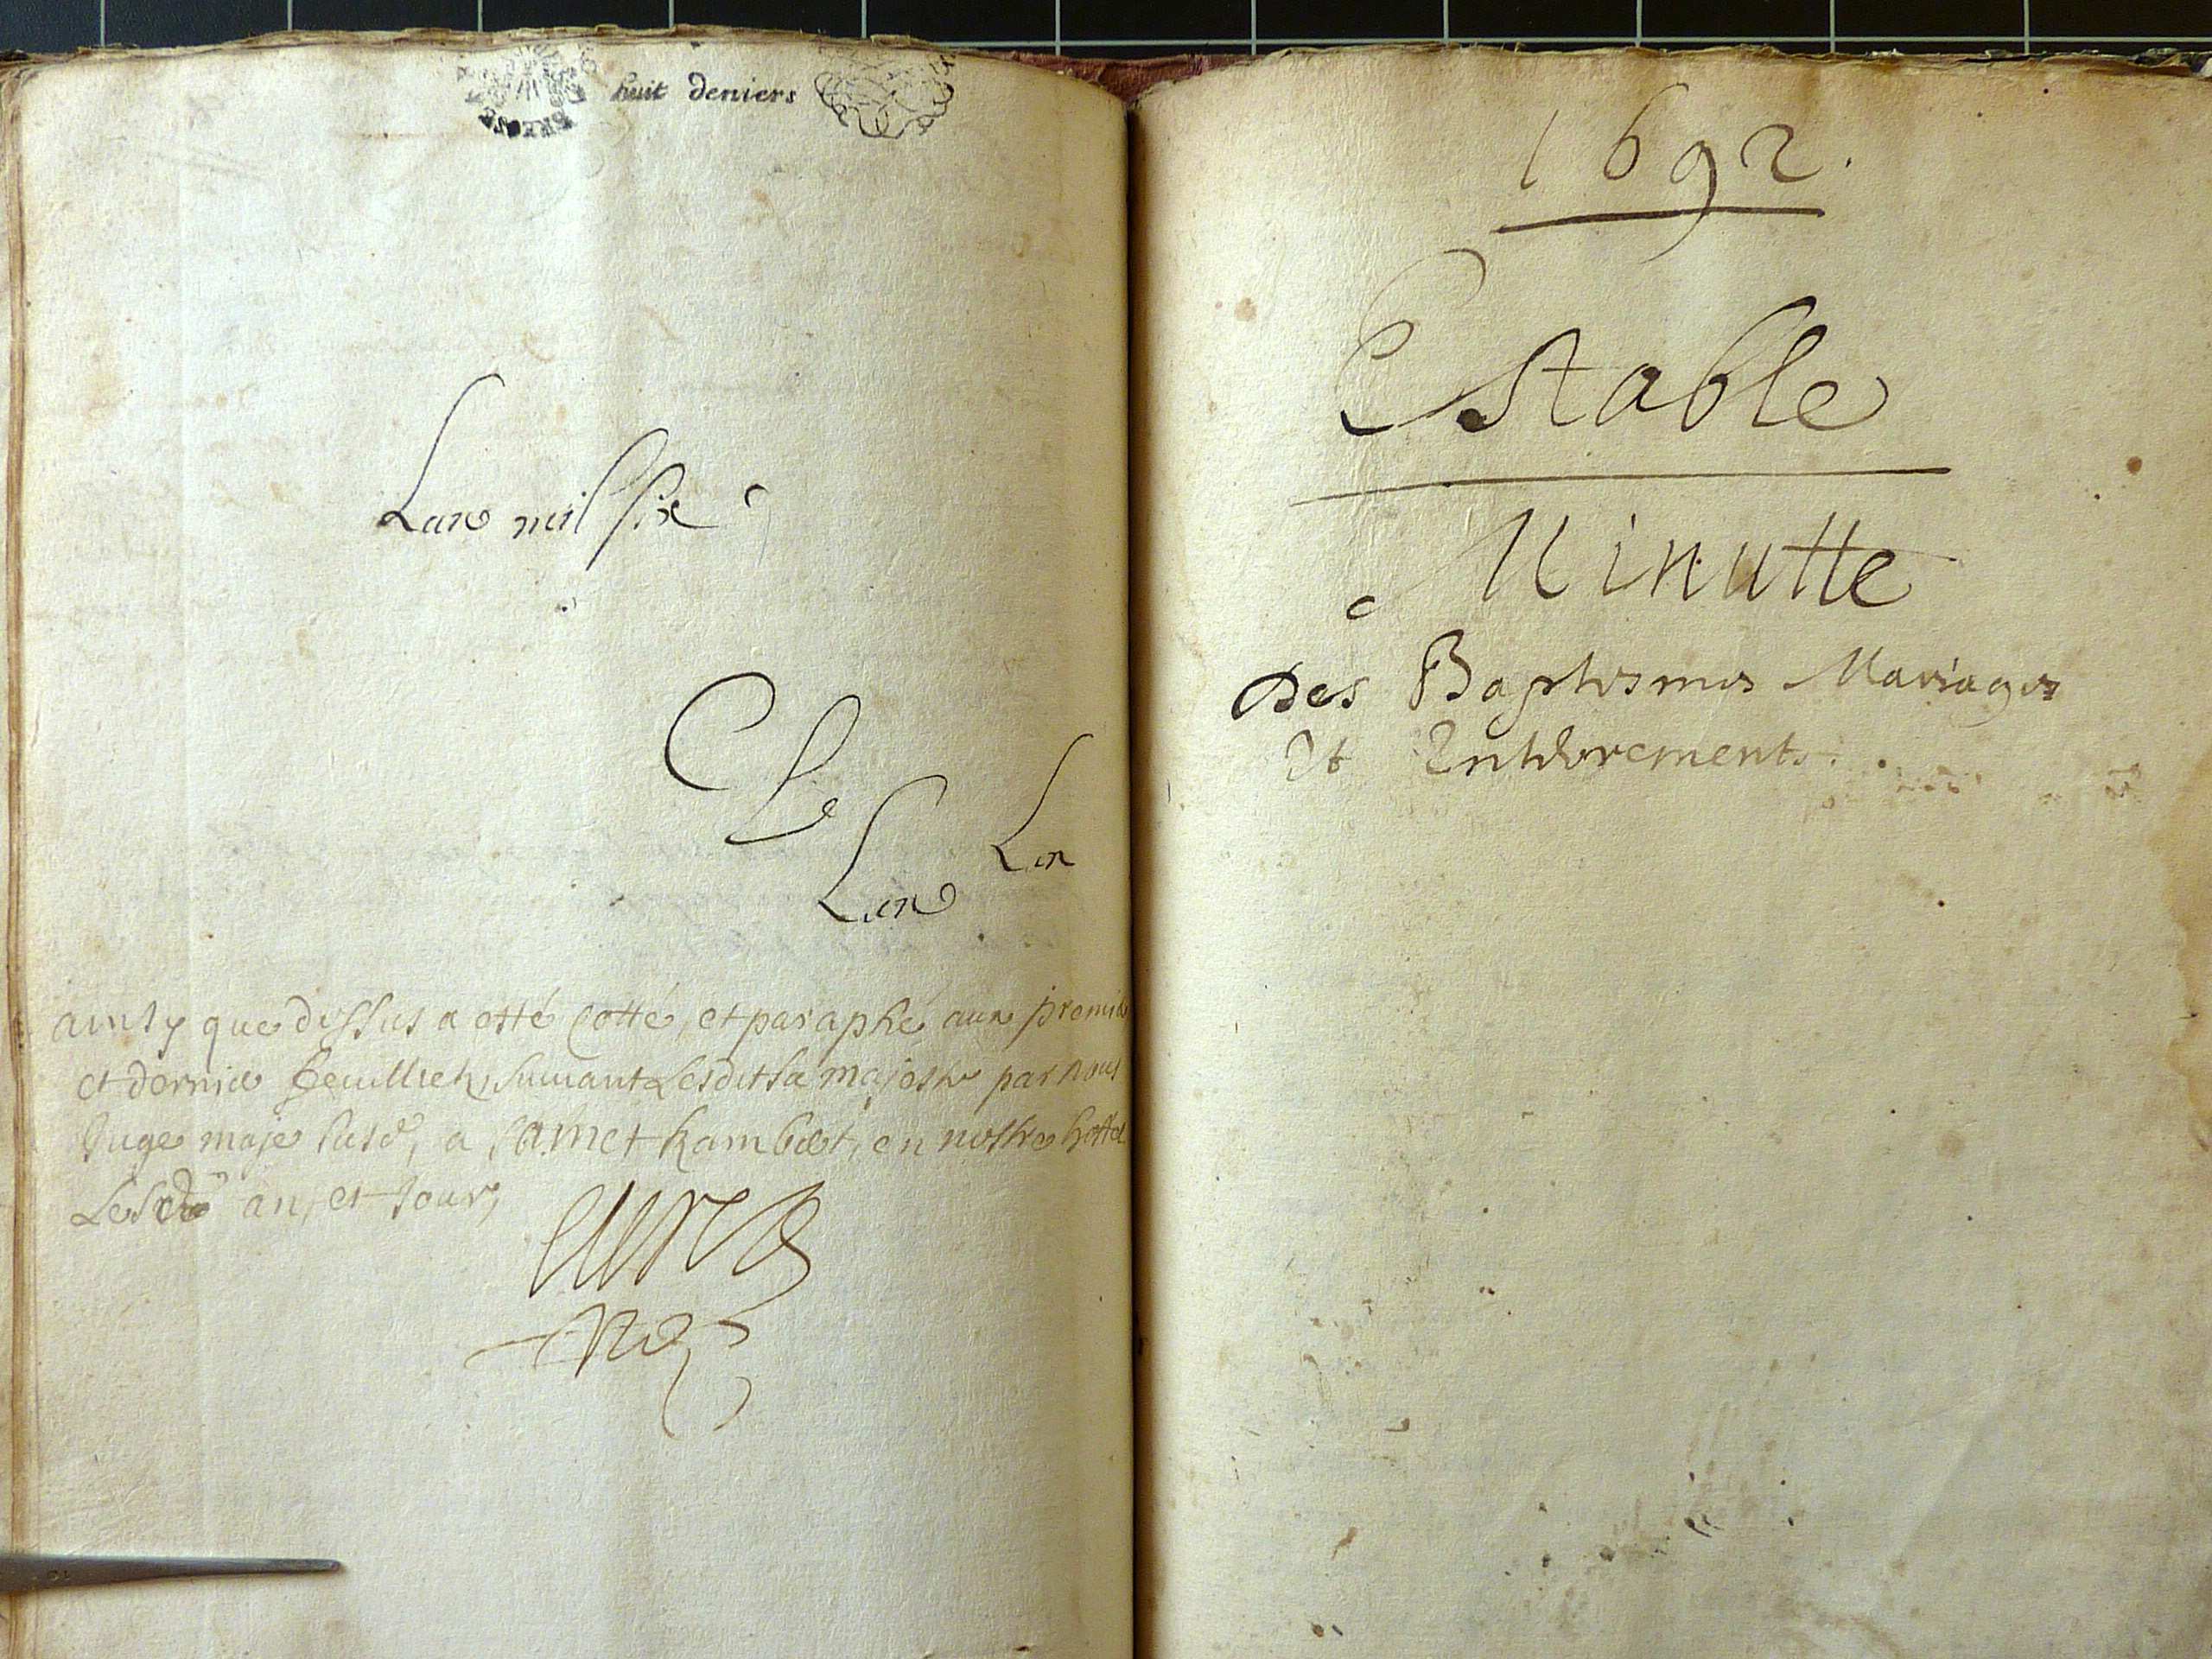 huit deniers
Lan mil six c
C
Le
Lan
Lan
ainsy que dessus a esté cotté, et paraphé aux premie
et dernie feuillietz suivant Ledit sa majeste par nous
Juge maje susd, a St Amet Rambert, en nostre hottel
Lesd an, et Jour,
1692.
Estable
Minutte
Des Baptesmes Mariages
Et Enterrements.